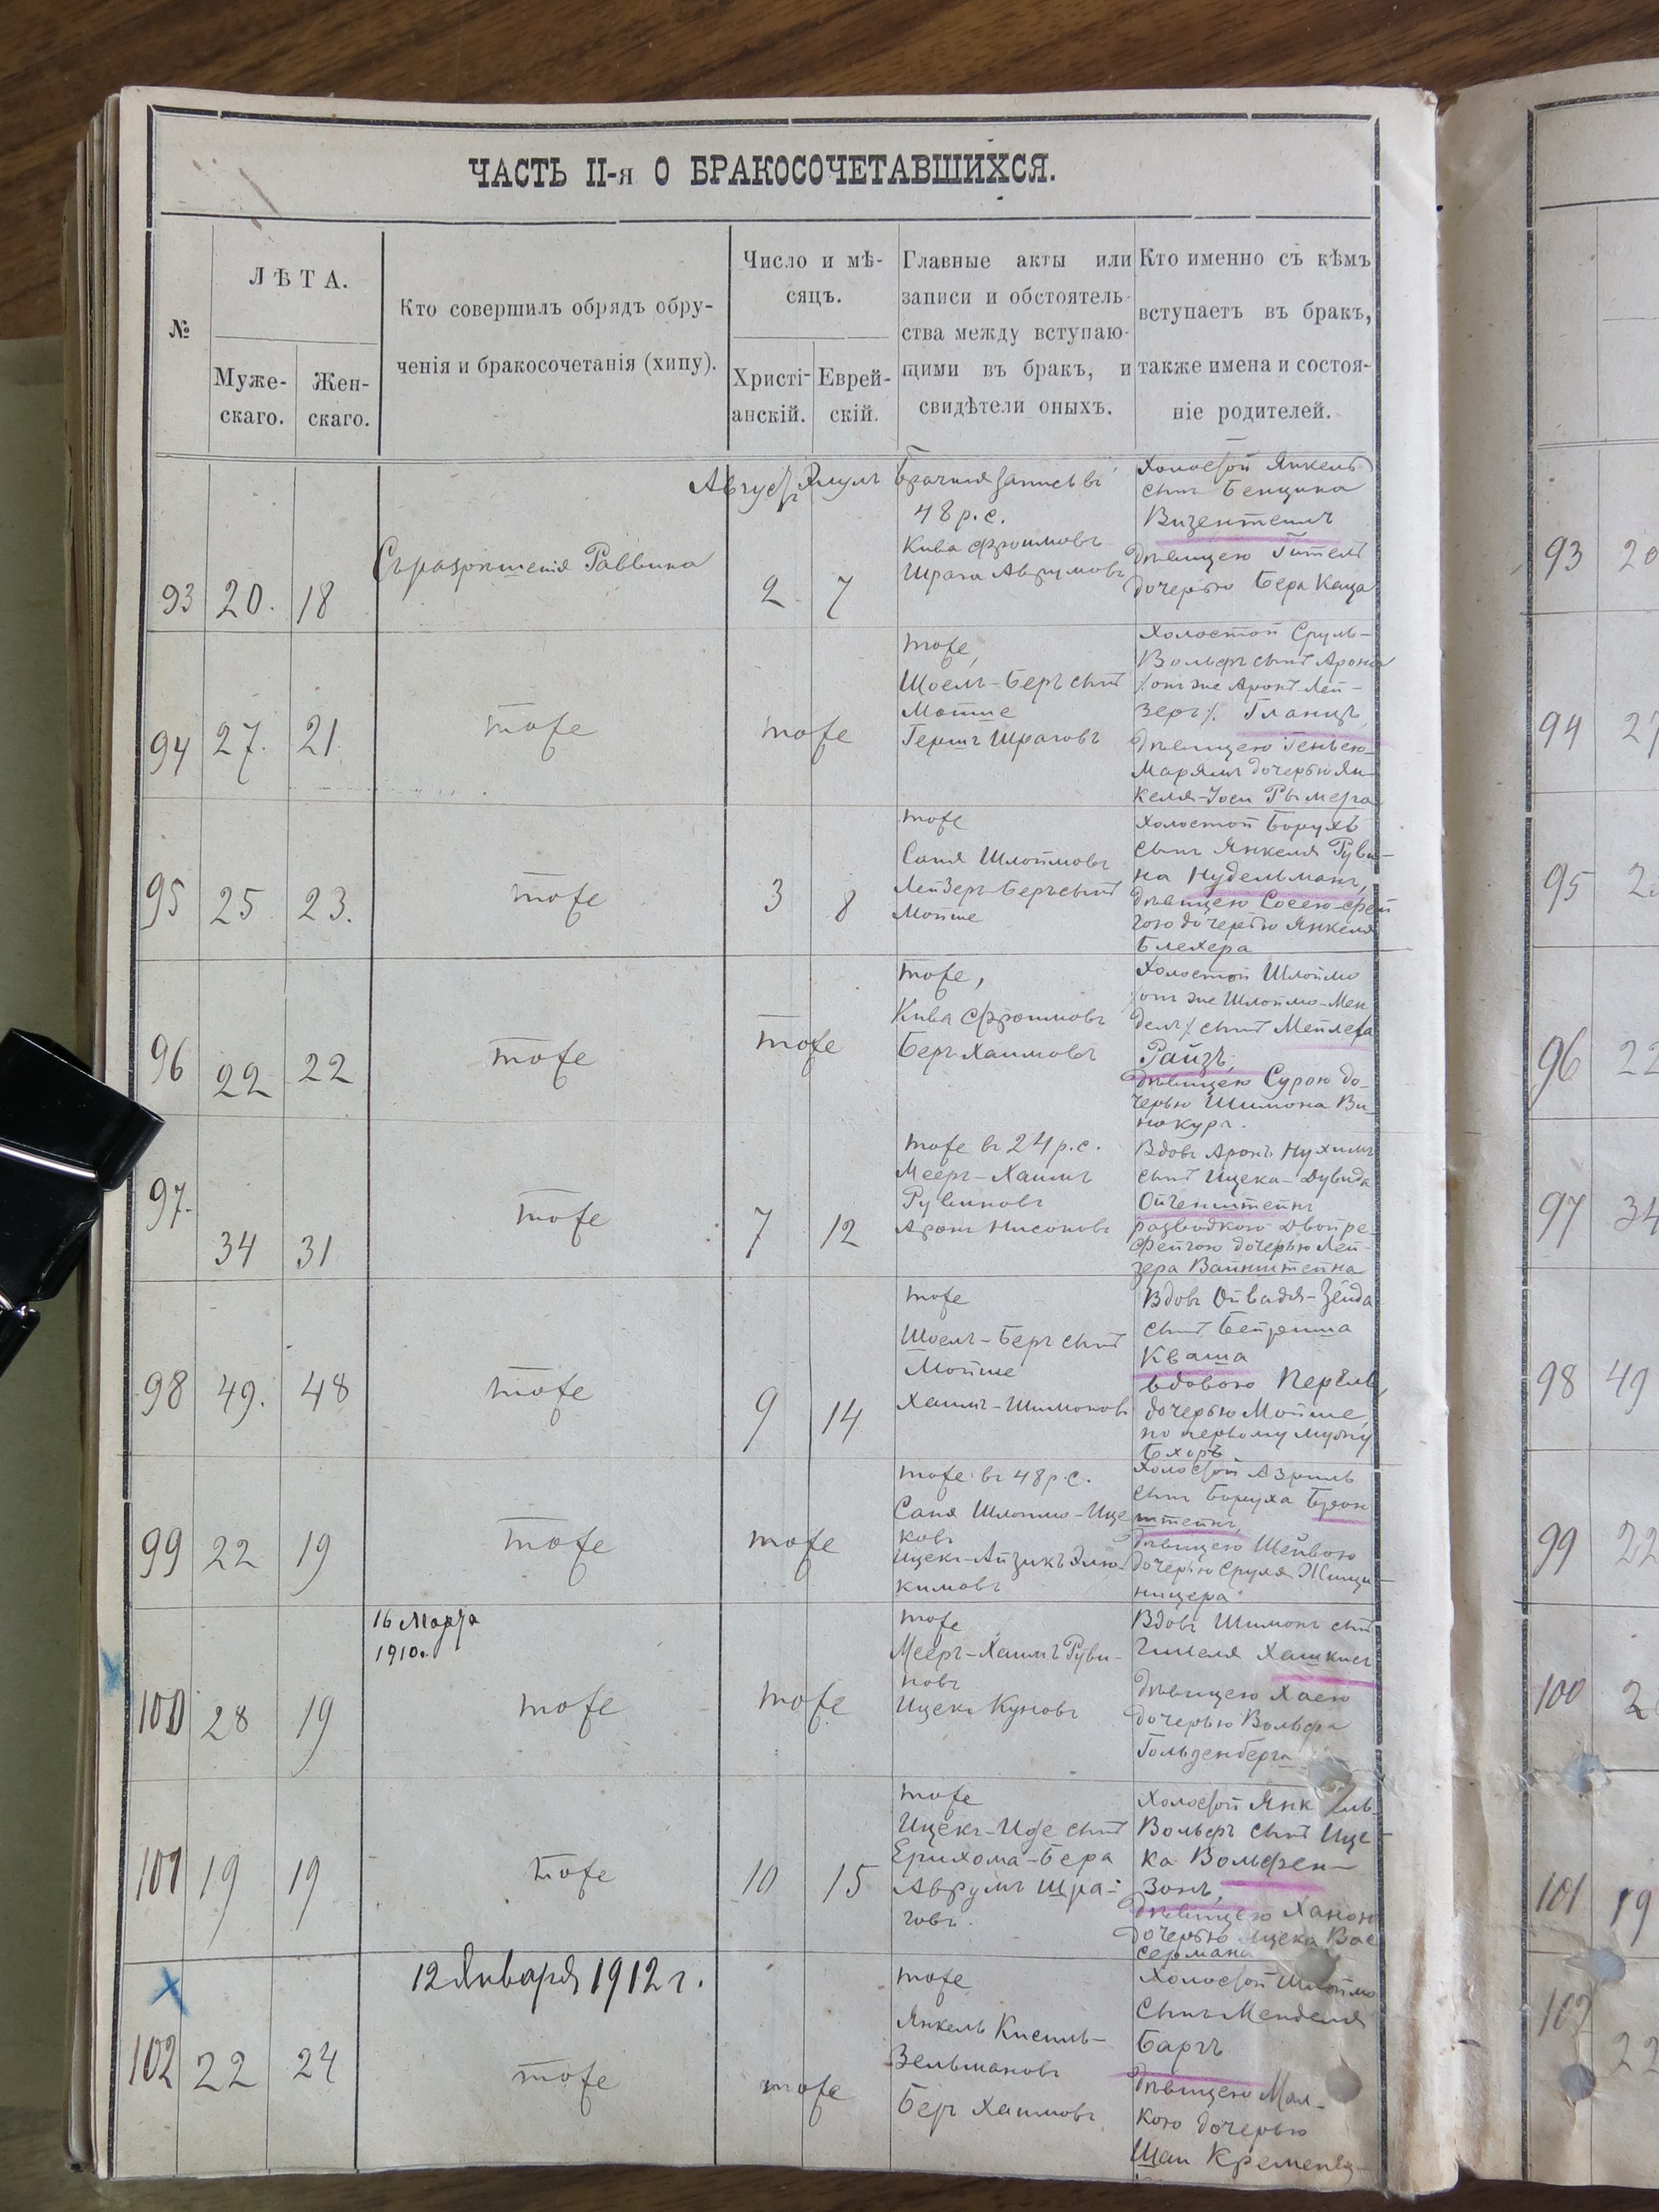 ЧАСТЬ II-я О БРАКОСОЧЕТАВШИХСЯ.
№
ЛѢТА.
Муже-
скаго.
Жен-
скаго.
Кто совершилъ обрядъ обру-
ченія и бракосочетанія (хипу).
Число и мѣ-
сяцъ.
Христі-
анскій.
Еврей-
скій.
Главные акты или
записи и обстоятель-
ства между вступаю-
щими въ бракъ, и
свидѣтели оныхъ.
Кто именно съ кѣмъ
вступаетъ въ бракъ,
также имена и состоя-
ніе родителей.
93
20.
18
Съ разрѣшенія Раввина
Августъ
2
Элулъ
7
Брачная запись въ
48 р.с.
Кива Фроимовъ
Шрага Аврумовъ
Холостой Янкель
сынъ Бенциона
Визентеилъ
дѣвицею Гитель
дочерью Бера Каца
94
27.
21
тоже
тоже
тоже,
Шоелъ-Беръ сынъ
Мойше
Гершъ Шраговъ
Холостой Сруль-
Вольфъ сынъ Арона
/онъ же Аронъ Лей-
зеръ/ Гланцъ
дѣвицею Генею-
Марямъ дочерью Ян-
келя-Іоси Рымера
95
25
23.
тоже
3
8
тоже
Саня Шлоймовъ
Лейзеръ-Беръ сынъ
Мойше
Холостой Борухъ
сынъ Янкеля Руви-
на Нудельманъ,
дѣвицею Сосею-Фей
гою дочерью Янкеля
Блехера
96
22
22
тоже
тоже
тоже,
Кива Фроимовъ
Беръ Хаимовъ
Холостой Шлоймо
/онъ же Шлоймо-Мен
дель/ сынъ Мейлеха
Райзъ,
дѣвицею Сурою до-
черью Шимона Ви-
нокуръ.
97.
34
31
тоже
7
12
тоже въ 24 р.с.
Мееръ-Хаимъ
Рувиновъ
Аронъ Нисоновъ
Вдовъ Аронъ Нухимъ
сынъ Ицека-Дувида
Ойгенштейнъ
разводкою Двойре-
Фейгою дочерью Лей-
зера Вайнштейна
98
49.
48
тоже
9
14
тоже
Шоелъ-Беръ сынъ
Мойше
Хаимъ-Шимоновъ
Вдовъ Ойвадя-Зейда
сынъ Бейриша
Кваша
вдовою Перель,
дочерью Мойше,
по первому мужу
Бхоръ
99
22
19
тоже
тоже
тоже въ 48 р.с.
Саня Шлоймо-Ице
ковъ
Ицекъ-Айзикъ Элю-
кимовъ
Холостой Азриль
сынъ Боруха Брон
штейнъ,
дѣвицею Шейвою
дочерью Сруля Жинци-
ницера
16 Марта
1910.
100
28
19
тоже
тоже
тоже
Мееръ-Хаимъ Руви-
новъ
Ицекъ Куновъ
Вдовъ Шимонъ сынъ
Гишеля Хашкисъ
дѣвицею Хаею
дочерью Вольфа
Гольденберга
101
19
19
тоже
10
15
тоже
Ицекъ-Иде сынъ
Ерихома-Бера
Аврумъ Шра-
говъ.
Холостой Янкель-
Вольфъ сынъ Ице-
ка Вольфен-
зонъ,
дѣвицею Ханою
дочерью Ицека Вас
сермана
12 Января 1912 г.
102
22
24
тоже
тоже
тоже
Янкель Кисиль-
Зельмановъ
Беръ Хаимовъ
Холостой Шлоймо
сынъ Менделя
Баргъ
дѣвицею Мал-
кою дочерью
Шаи Кременец-
93
20
94
27
95
2
96
22
97
34
98
49
99
22
100
2
101
19
102
22